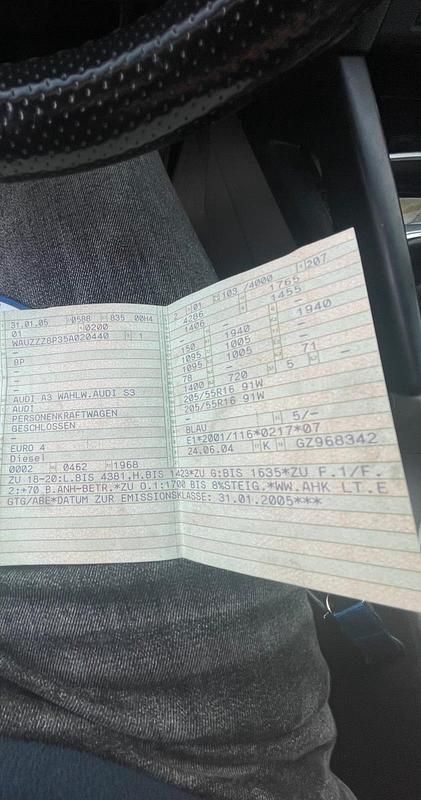 31.01.05 0588 835 00H4
01 0200
WAUZZZ8P35A020440 1
–
8P
–
–
–
AUDI A3 WAHLW.AUDI S3
AUDI
PERSONENKRAFTWAGEN
GESCHLOSSEN
–
EURO 4
Diesel
0002 0462 1968
2 01 103 /4000 207
4286 1765
1406 – 1455
–
150 1940 – 1940
1095 1005
1095 1005 –
78 – 71 –
1400 720 5
205/55R16 91W
205/55R16 91W
–
– 5/–
BLAU
E1*2001/116*0217*07
24.06.04 K GZ968342
ZU 18-20:L.BIS 4381,H.BIS 1423*ZU G:BIS 1635*ZU F.1/F.
2:+70 B.ANH-BETR.*ZU O.1:1700 BIS 8%STEIG.*WW.AHK LT.E
GTG/ABE*DATUM ZUR EMISSIONSKLASSE: 31.01.2005***